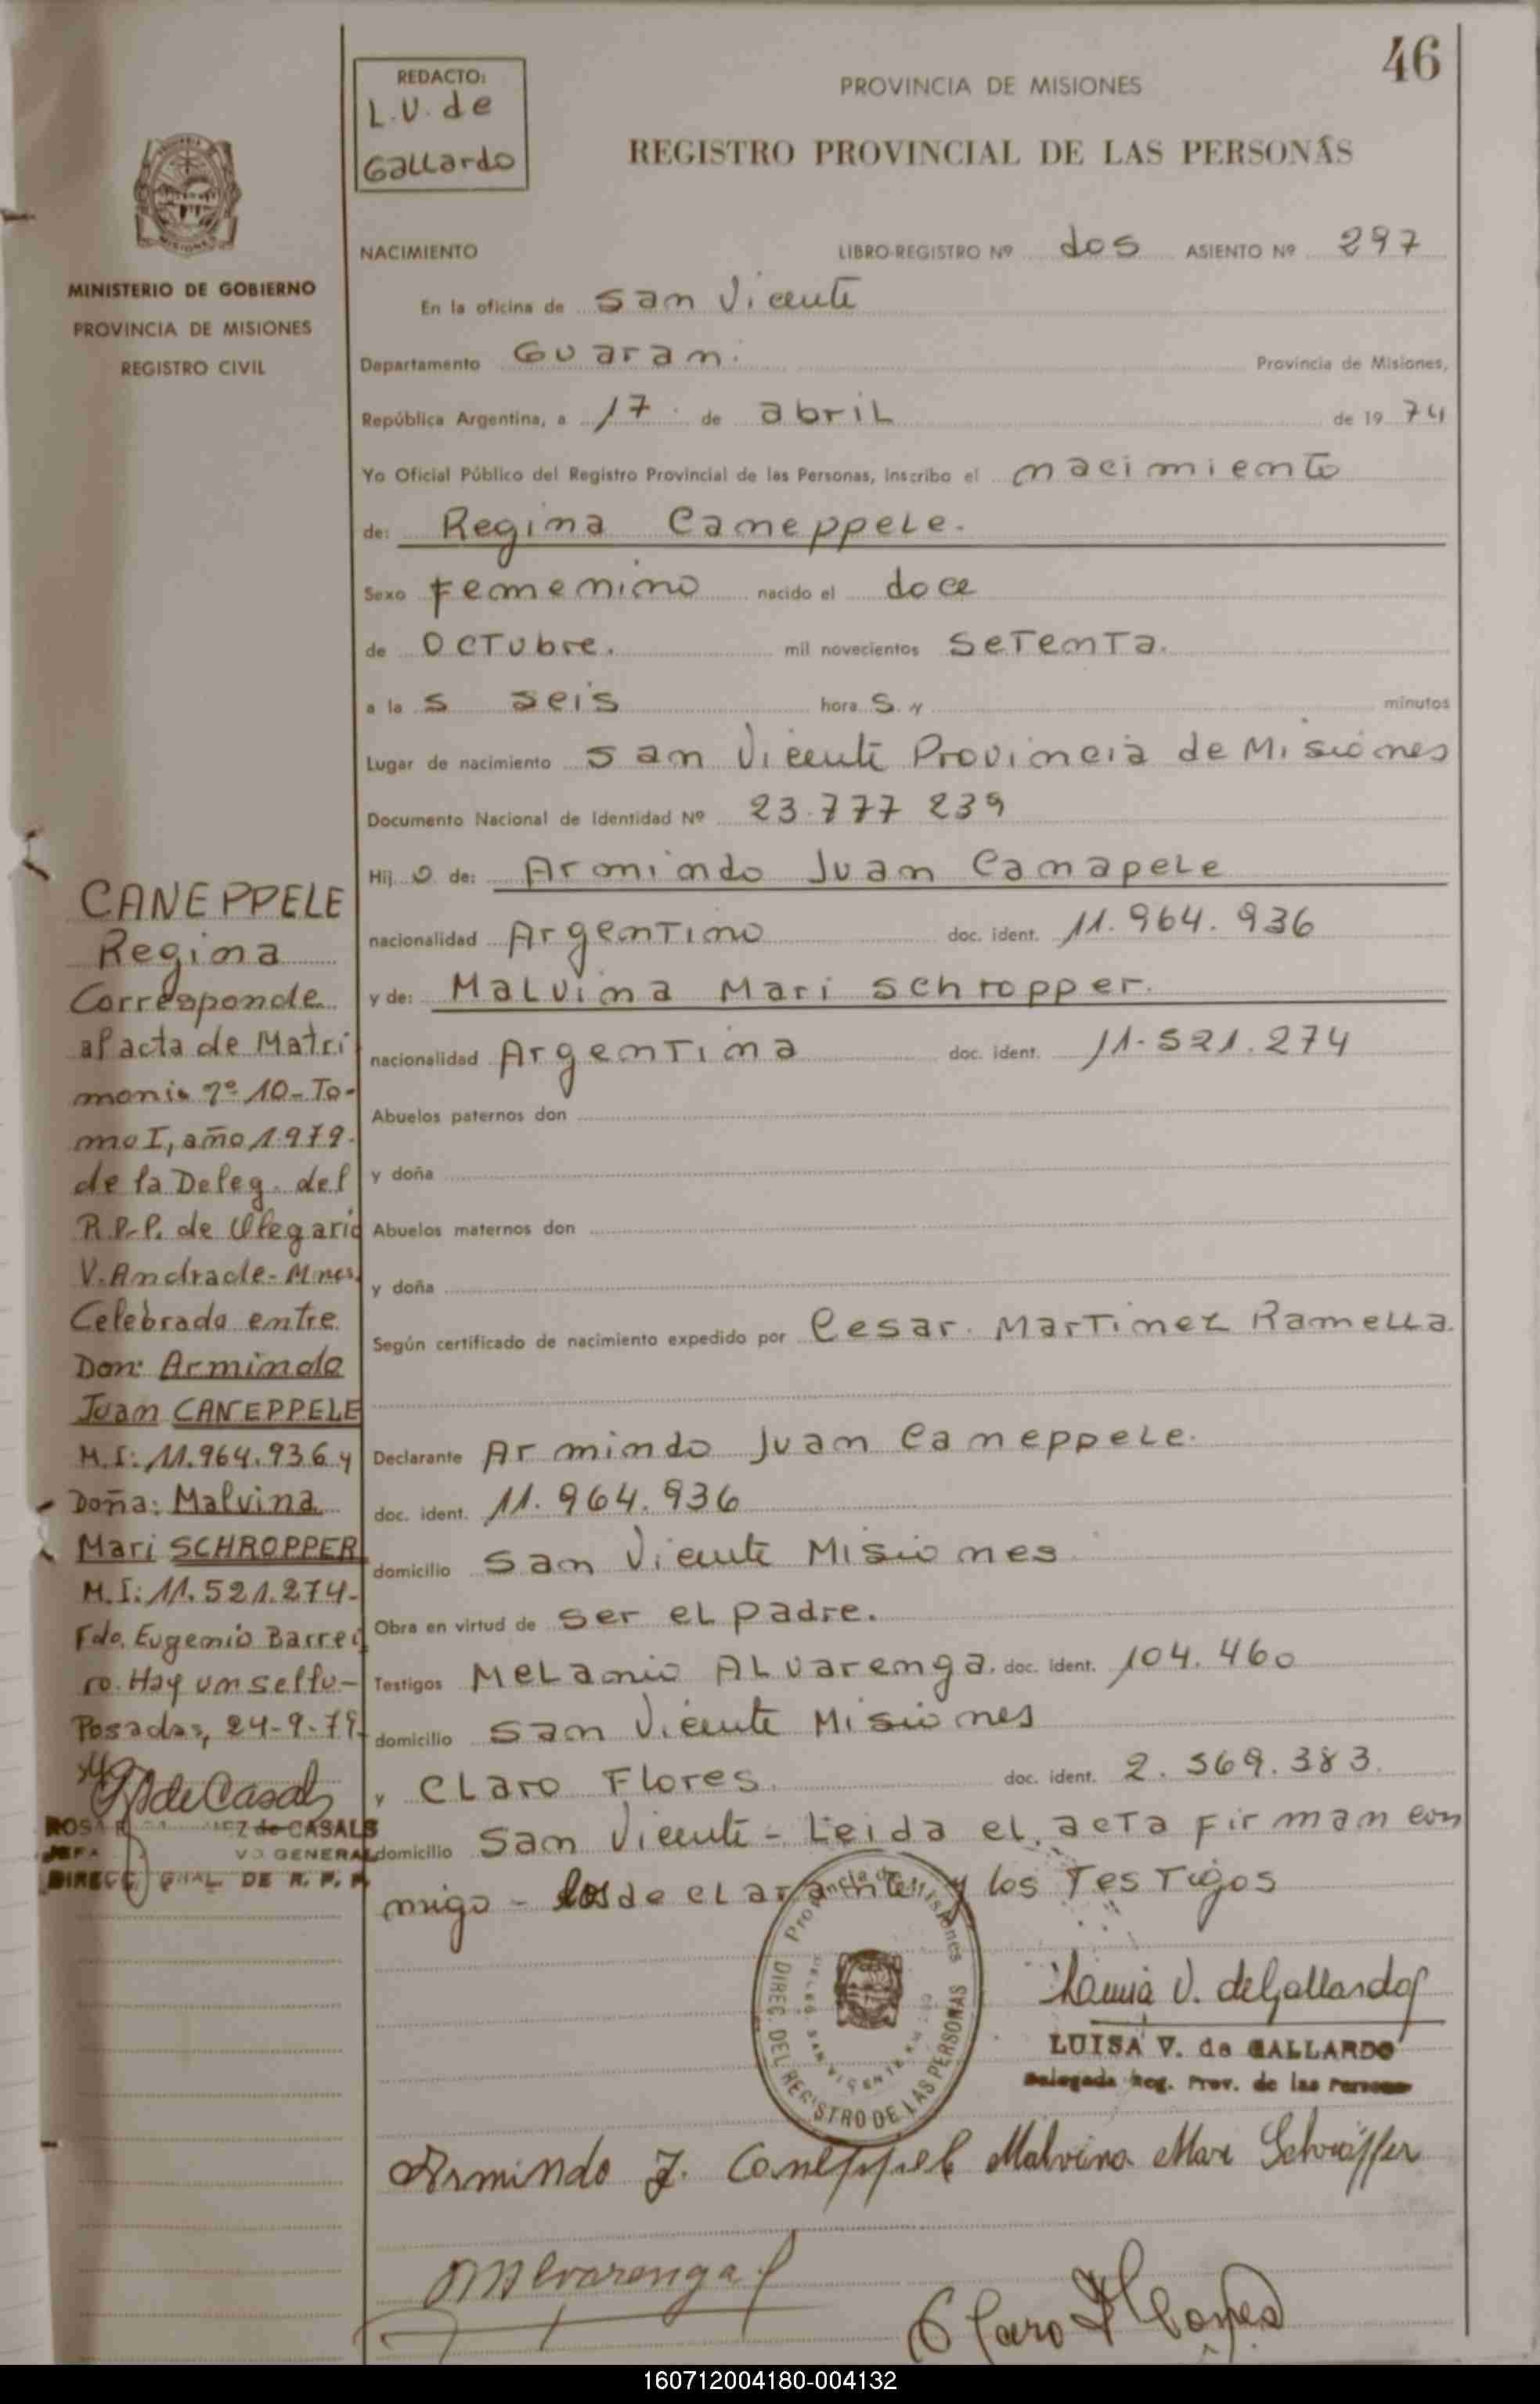 46
REDACTO:
L.V. de
Gallardo
PROVINCIA DE MISIONES
REGISTRO PROVINCIAL DE LAS PERSONAS
MINISTERIO DE GOBIERNO
PROVINCIA DE MISIONES
REGISTRO CIVIL
NACIMIENTO LIBRO-REGISTRO Nº dos ASIENTO Nº 297
En la oficina de San Vicente
Departamento Guarani Provincia de Misiones,
República Argentina, a 17 de abril de 1974
Yo Oficial Público del Registro Provincial de las Personas, inscribo el nacimiento
de: Regina Caneppele.
Sexo Femenino nacido el doce
de Octubre. mil novecientos Setenta.
a las seis horas y minutos
Lugar de nacimiento San Vicente Provincia de Misiones
Documento Nacional de Identidad Nº 23.777 239
Hijo de: Armindo Juan Canapele
nacionalidad Argentino doc. ident. 11.964.936
y de: Malvina Mari Schropper.
nacionalidad Argentina doc. ident. 11.521.274
Abuelos paternos don
y doña
Abuelos maternos don
y doña
Según certificado de nacimiento expedido por Cesar. Martinez Ramella.
Declarante Armindo Juan Caneppele.
doc. ident. 11.964.936
domicilio San Vicente Misiones
Obra en virtud de ser el padre.
Testigos Melanio Alvarenga. doc. ident. 104.460
domicilio San Vicente Misiones
y Claro Flores. doc. ident. 2.569.383.
domicilio San Vicente - Leida el acta firman con
migo - los declarante y los Testigos
CANEPPELE
Regina
Corresponde
al acta de Matri
monio Nº 10-To-
mo I, año 1.979.
de la Deleg. del
R.P.P. de Olegario
V. Andrade-Mnes.
Celebrado entre
Don: Armindo
Juan CANEPPELE
M.I: 11.964.936 y
Doña: Malvina
Mari SCHROPPER
M.I: 11.521.274-
Fdo. Eugenio Barrei
ro. Hay un sello-
Posadas, 24-9-79
de Casals
de CASALS
GENERAL
DE R. P. P.
Provincia de Misiones
DIREC. DEL REGISTRO DE LAS PERSONAS
DELEG. SAN VICENTE
V. de Gallardo
LUISA V. de GALLARDO
Delegada Reg. Prov. de las Personas
Armindo J. Caneppele Malvina Mari Schröpffer
M Alvarenga
Claro Flores
160712004180-004132